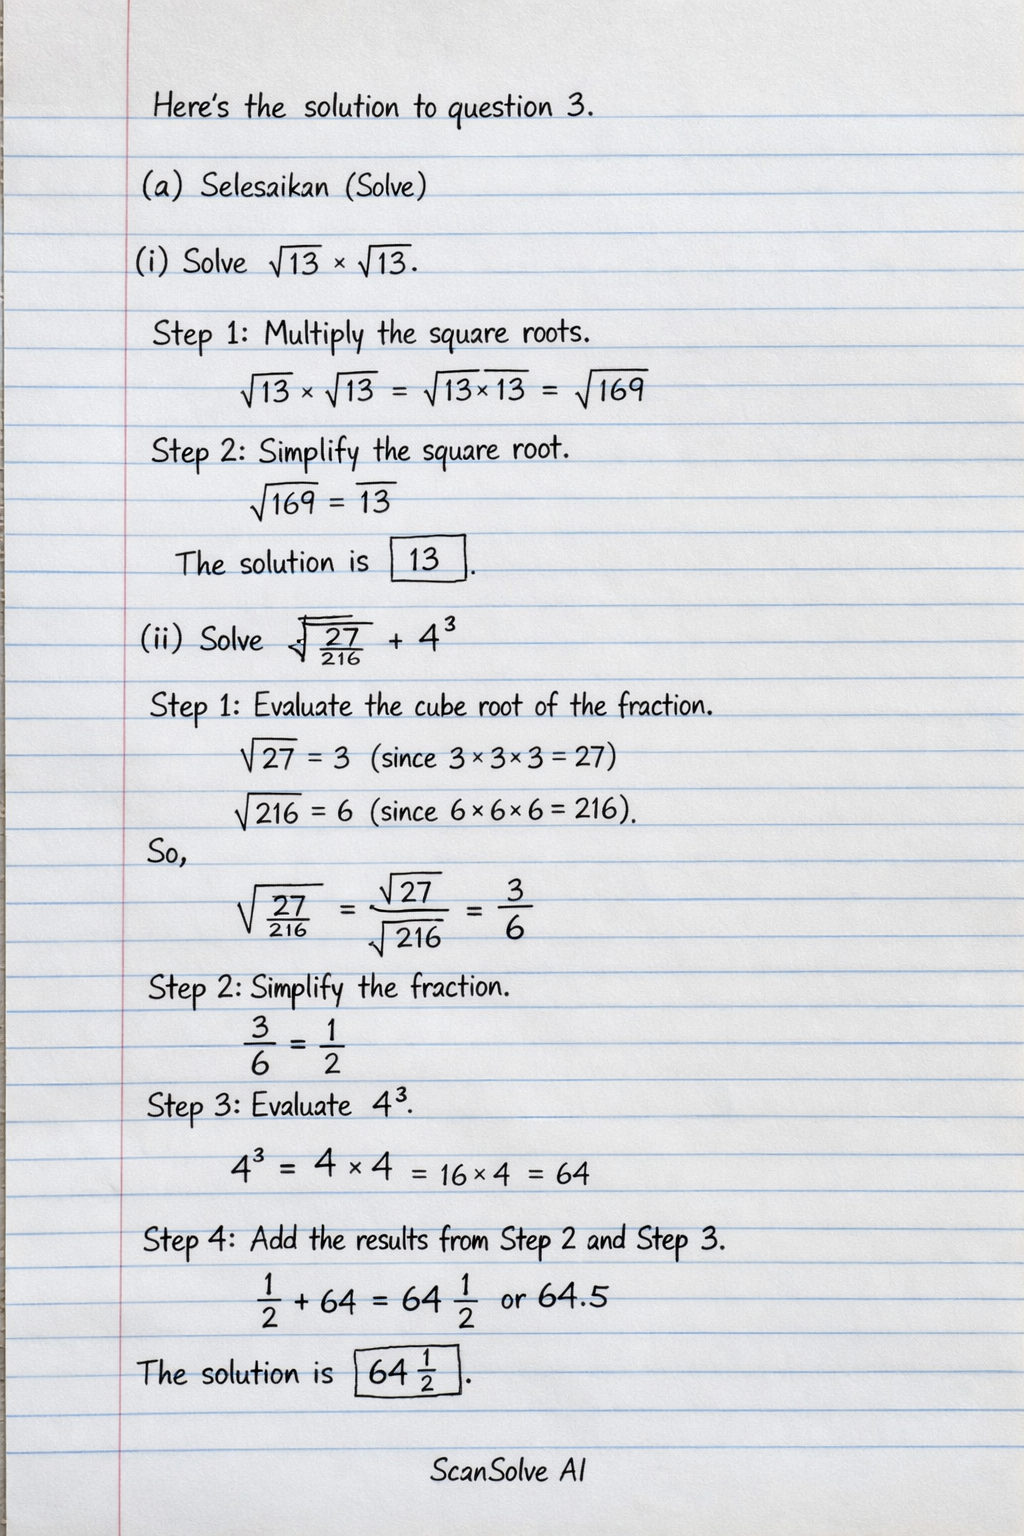 Here's the solution to question 3.
(a) Selesaikan (Solve)
(i) Solve √13 × √13.
Step 1: Multiply the square roots.
√13 × √13 = √13×13 = √169
Step 2: Simplify the square root.
√169 = 13
The solution is 13.
(ii) Solve √27/216 + 4³
Step 1: Evaluate the cube root of the fraction.
√27 = 3 (since 3×3×3 = 27)
√216 = 6 (since 6×6×6 = 216).
So,
√27/216 = √27/√216 = 3/6
Step 2: Simplify the fraction.
3/6 = 1/2
Step 3: Evaluate 4³.
4³ = 4 × 4 = 16×4 = 64
Step 4: Add the results from Step 2 and Step 3.
1/2 + 64 = 64 1/2 or 64.5
The solution is 64 1/2.
ScanSolve AI